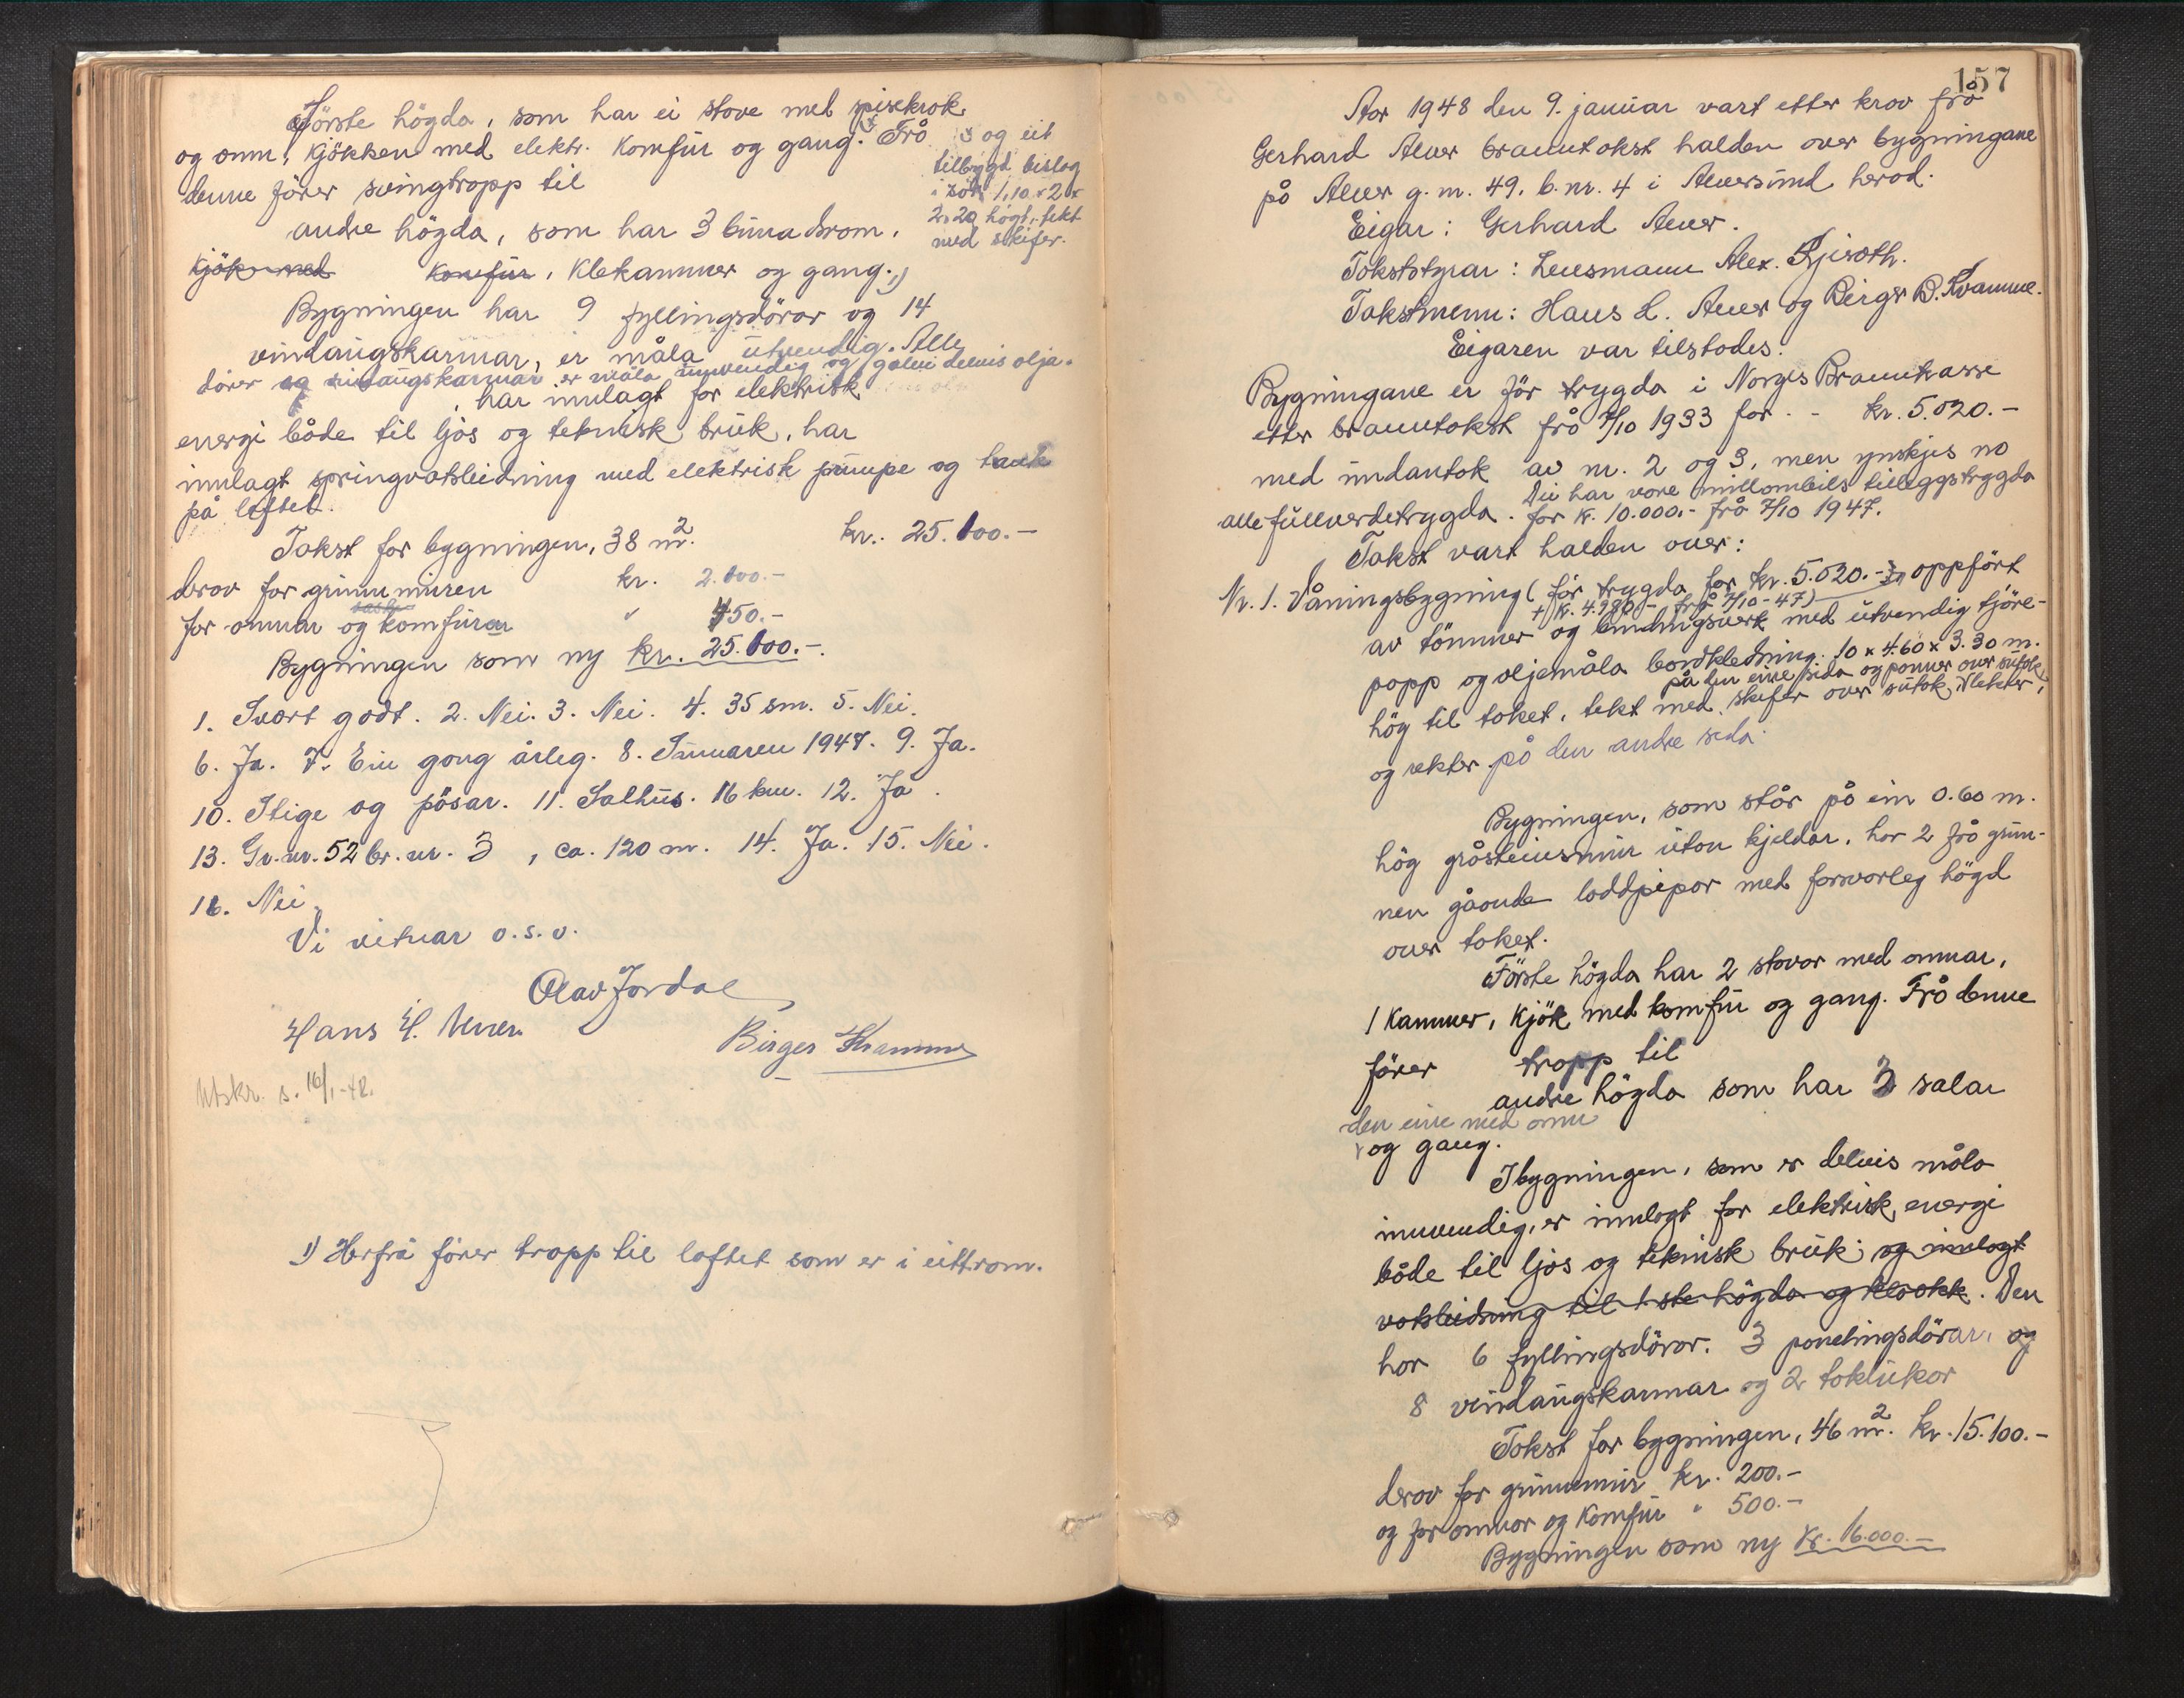 Förste högda, som har ei stove med spisekrok
og omn, kjökken med elektr. komfür og gang. x) Frå
x og eit
tilbygd bislag
i sör 1,10 x 2 x
2,20 högt, tekt
med skifer.
denne förer svingtropp til
andre högda, som har 3 bura drom,
kjök med komfür, klekammer og gang. 1)
Bygningen har 9 fyllingsdörar og 14
vindaugskarmar, er måla utvendig. Alle
dörer og vindaugskarmar er måla innvendig og golvi delvis olja.
har innlagt for elektrisk
energi både til ljos og teknisk bruk, har
innlagt springvatsleidning med elektrisk pumpe og tank
på loftet.
Takst for bygningen, 38 m². kr. 25.100.-
derav for grunnmuren kr. 2.100.-
for omnar og komfürar " 450.-
Bygningen som ny kr. 25.100.-.
1. Svært godt. 2. Nei. 3. Nei. 4. 35 sm. 5. Nei.
6. Ja. 7. Ein gong årleg. 8. Januaren 1947. 9. Ja.
10. Stige og pösar. 11. Salhus. 16 km. 12. Ja.
13. Gr.nr. 52 br.nr. 3, ca. 120 m. 14. Ja. 15. Nei.
16. Nei.
Vi vitnar o.s.v.
Olav Jordal
Hans H. Alver
Birger Kvamme
Utskr. s. 16/1-48.
1) Herfrå förer tropp til loftet som er i eitt rom.
157
Aar 1948 den 9. januar vart etter krav frå
Gerhard Alver branntakst halden over bygningane
på Alver g.nr. 49, b.nr. 4 i Alversund herad.
Eigar: Gerhard Alver.
Takststyrar: Lensmann Alex. Gjisoth.
Takstmenn: Hans L. Alver og Birger D. Kvamme.
Eigaren var tilstades.
Bygningane er för trygda i Norges Brannkasse
etter branntakst frå 7/10 1933 for - - kr. 5.020.-
med undantak av nr. 2 og 3, men ynskjes no
alle fullverdetrygda. Dei har vore millombils tilleggstrygda
for kr. 10.000.- frå 7/10 1947.
Takst vart halden over:
Nr. 1. Våningsbygning (för trygda for kr. 5.020.-) oppfört
+ kr. 4.980.- frå 7/10-47)
av tömmer og bindingsverk med utvendig tjöre-
papp og oljemåla bordkledning. 10 x 4.60 x 3.30 m.
hög til taket, tekt med skifer over sutak, vlekter,
på den eine sida og panner over sutak
og rekter på den andre sida.
Bygningen, som står på ein 0.60 m.
hög gråsteinsmur utan kjeldar, har 2 frå grun-
nen gåande loddpipar med forsvarleg högd
over taket.
Förste högda har 2 stovar med omnar,
1 kammer, kjök med komfür og gang. Frå denne
förer tropp til
andre högda som har 3 salar
den eine med omn
v og gang.
I bygningen, som er delvis måla
innvendig, er innlagt for elektrisk energi
både til ljos og teknisk bruk, og innlagt
vatsleidning til 1ste högda og kloakk. Den
har 6 fyllingsdörar, 3 panelingsdörar, og
8 vindaugskarmar og 2 taklukor
Takst for bygningen, 46 m². kr. 15.100.-
derav for grunnmur kr. 200.-
og for omnar og komfür " 500.-
Bygningen som ny kr. 16.000.-